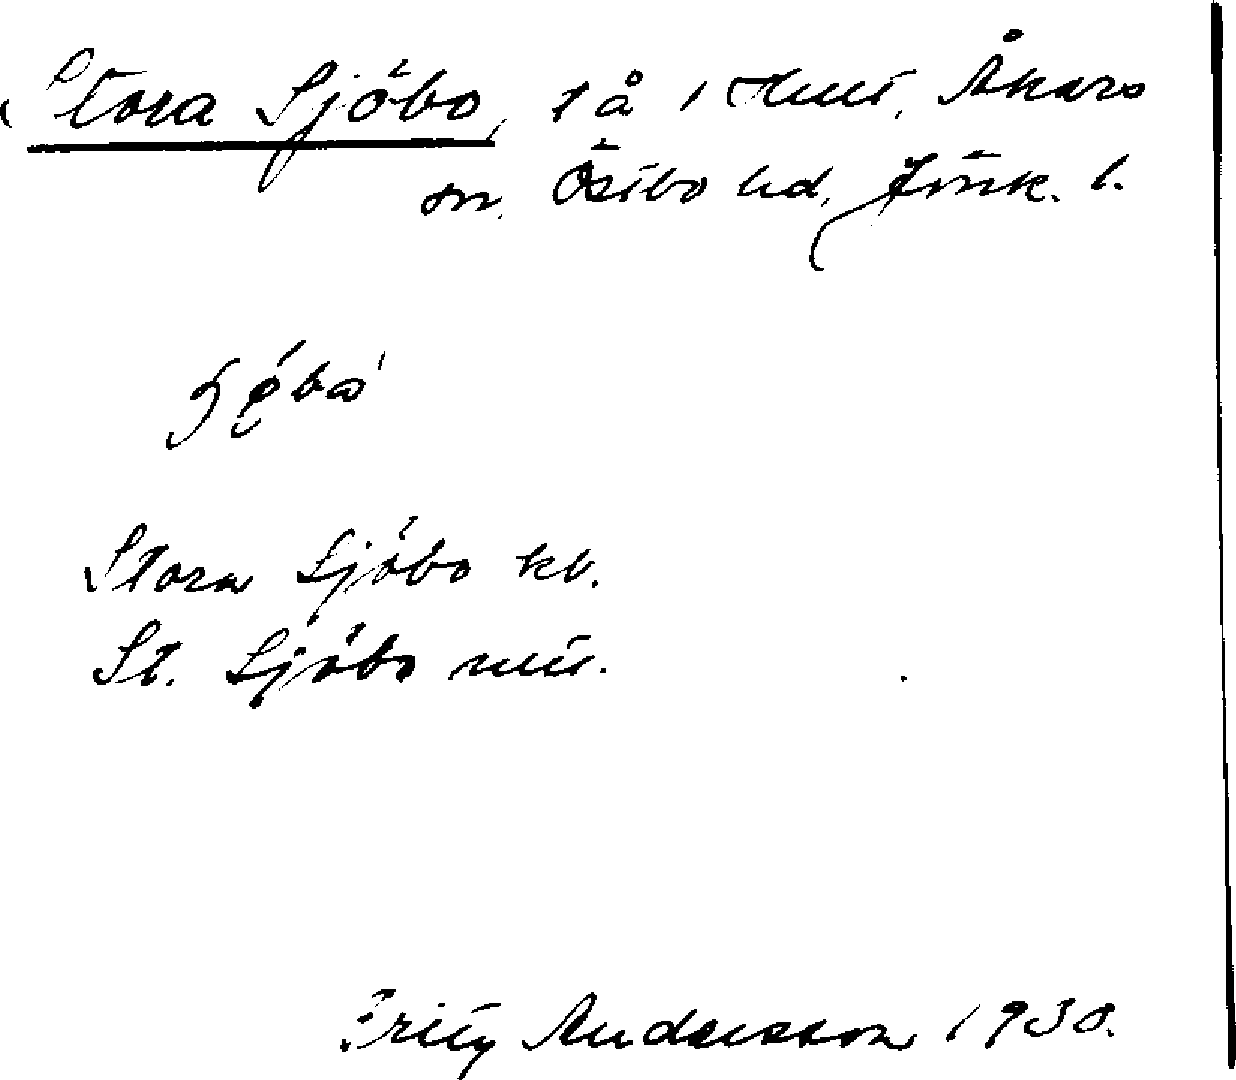 Stora Sjöbo, 1 å 1 mt, Åkers
sn, Östbo hd, Jönk. l.
Stora Sjöbo kb.
St. Sjöbo mt.
Fritz Andersson 1930.